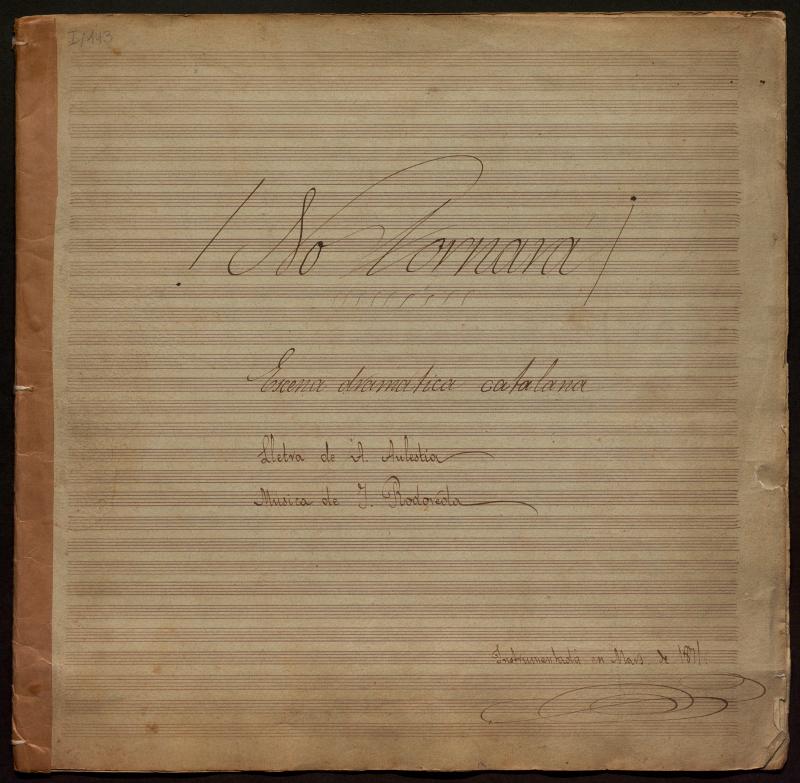 I/143
¡No Tornará!
Escena dramática catalana
Lletra de A. Aulestia
Musica de J. Rodoreda
Instrumentada en Mars de 1871.